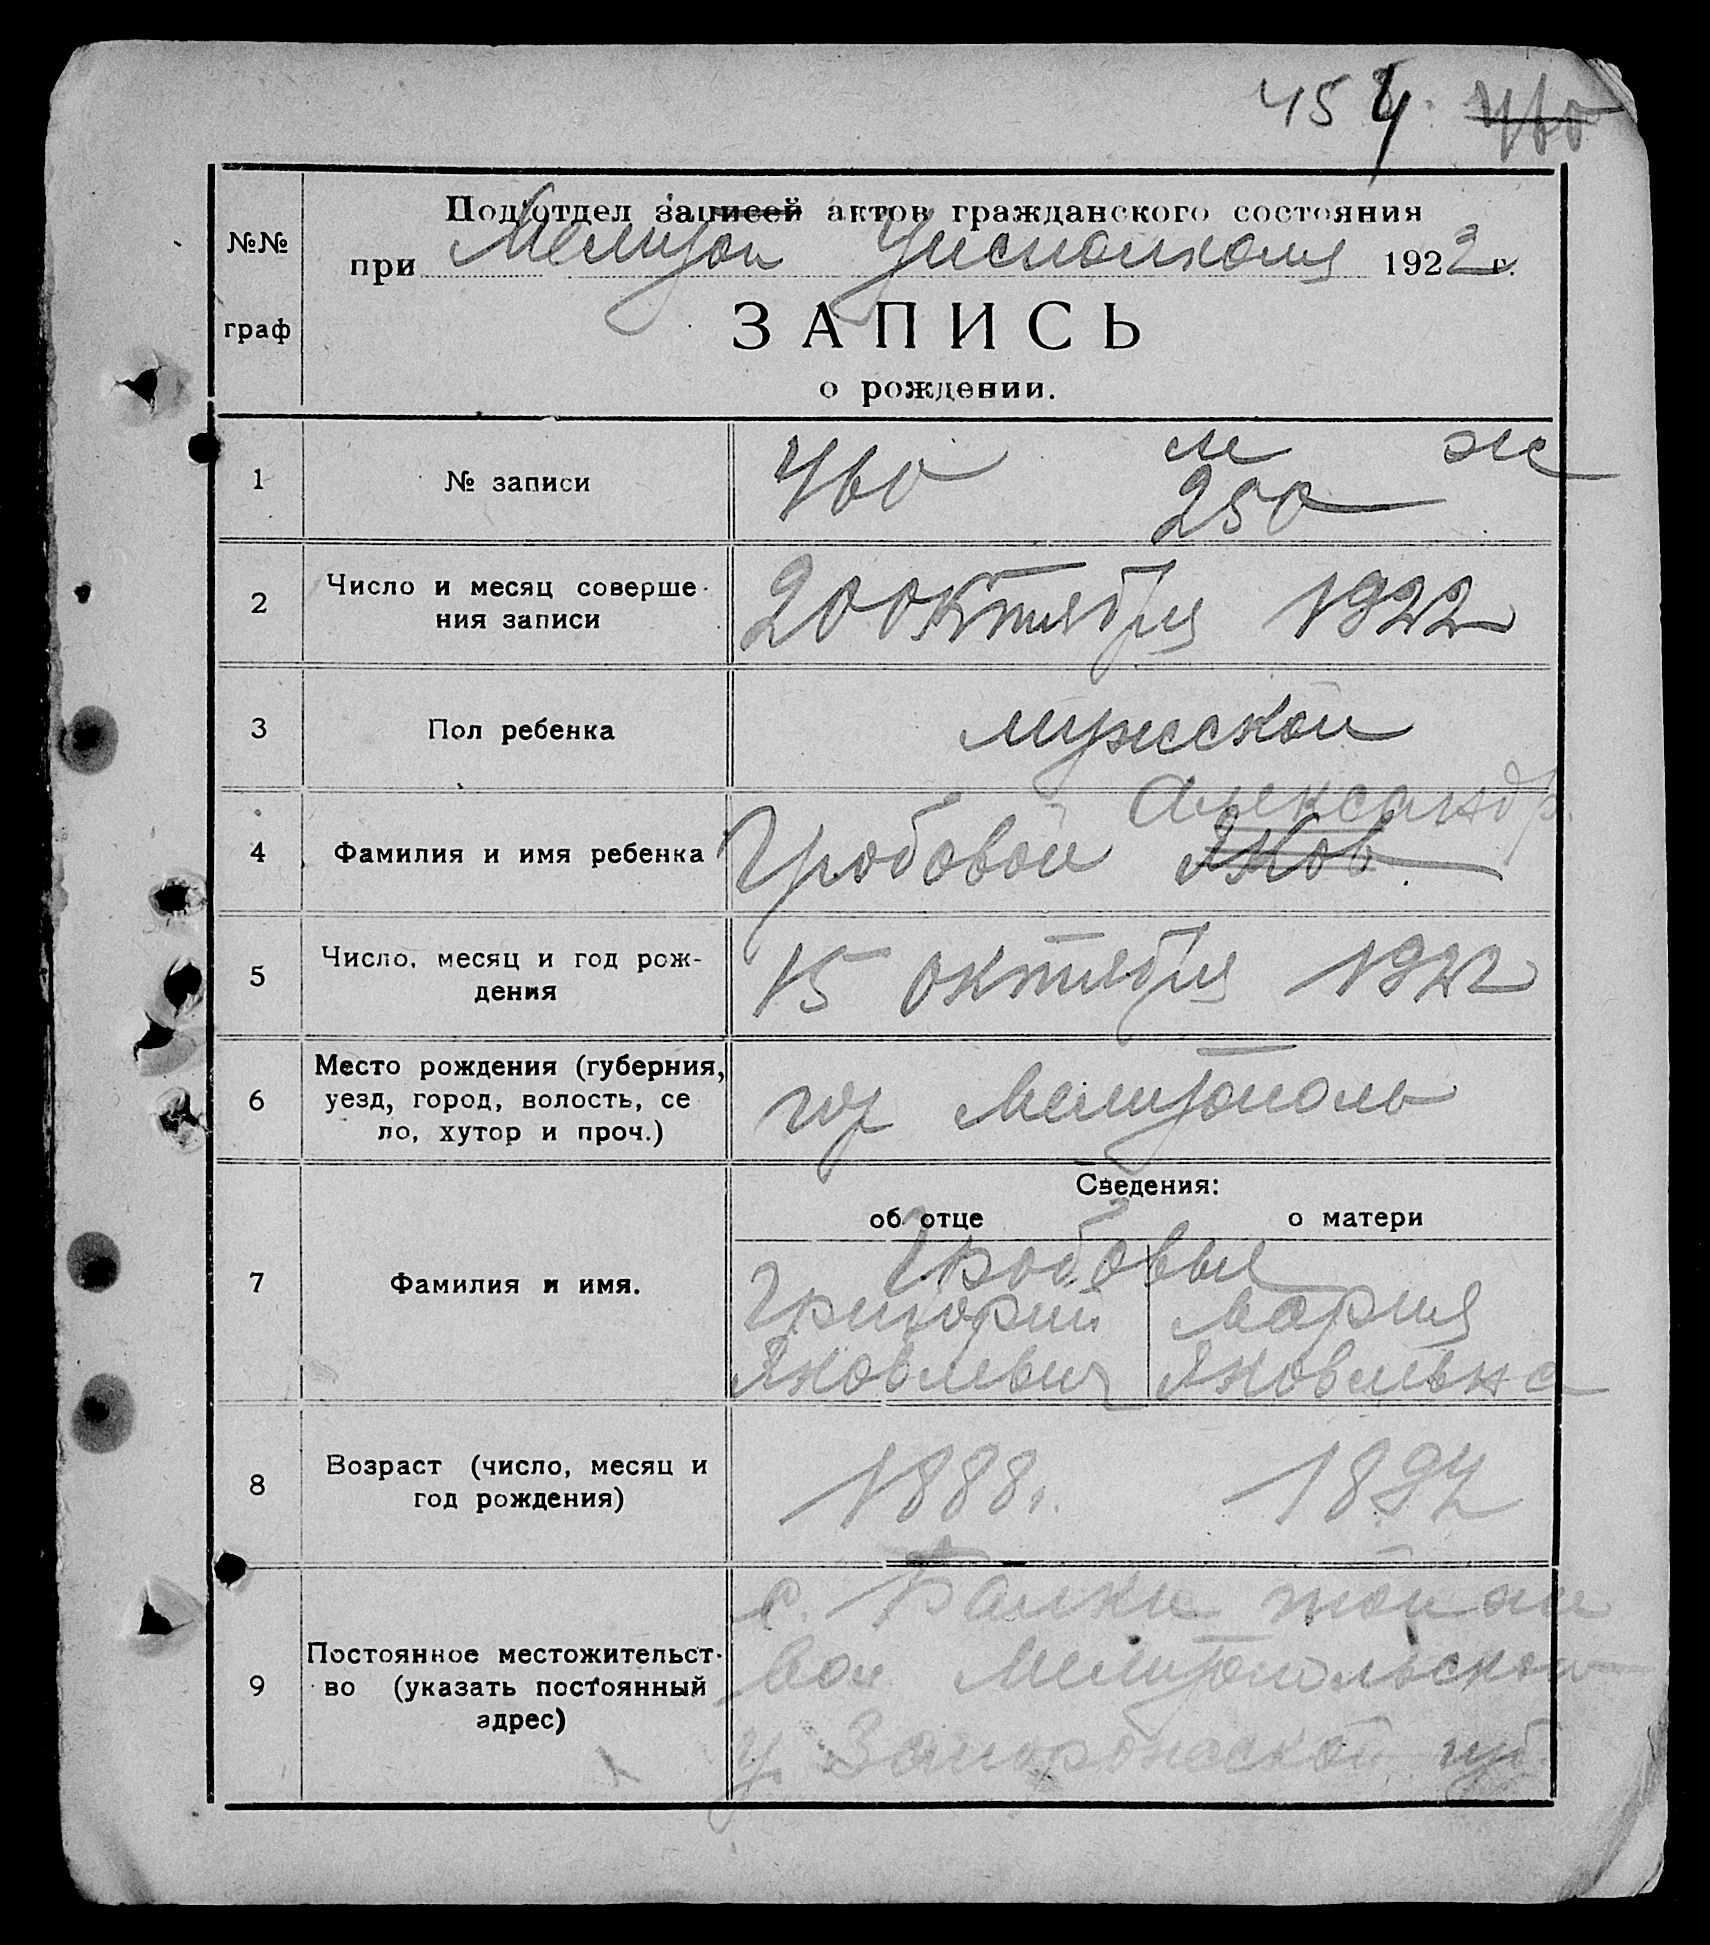 454. 460
Подотдел записей актов гражданского состояния
№№
при Мелитоп Уисполкома 1922 г.
граф
ЗАПИСЬ
о рождении.
м ж
1 № записи 460 250
2 Число и месяц соверше-
ния записи
20 октября 1922
3 Пол ребенка мужской
Александр.
4 Фамилия и имя ребенка Гробовой Яков
5 Число, месяц и год рож-
дения
15 октября 1922
6 Место рождения (губерния,
уезд, город, волость, се
ло, хутор и проч.)
гор Мелитополь
Сведения:
об отце о матери
7 Фамилия и имя.
Гробовые
Григорий Мария
Яковлевич Яковлевна
8 Возраст (число, месяц и
год рождения)
1888. 1892
9 Постоянное местожительст-
во (указать постоянный
адрес)
с. Балки той же
вол Мелитопольского
у. Запорожской губ